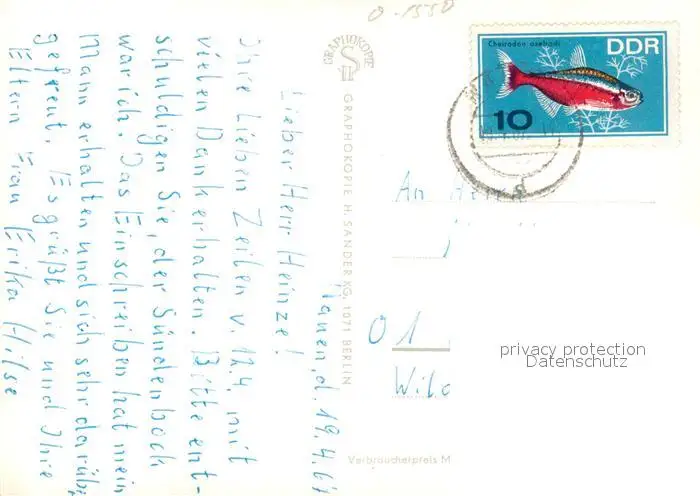 0-1550
Cheirodon axelrodi
DDR
10
GRAPHOKOPIE
GRAPHOKOPIE H. SANDER KG, 1071 BERLIN
d. 19.4.67
Lieber Herr Heinze!
Ihre Lieben Zeilen v. 12.4. mit
vielen Dank erhalten. Bitte ent-
schuldigen Sie, der Sündenbock
war ich. Das Einschreiben hat mein
Mann erhalten und sich sehr darüb.
gefreut. Es grüßt Sie und Ihre
Eltern Frau Erika Hilse
An Herrn
01
privacy protection
Datenschutz
Verbraucherpreis M